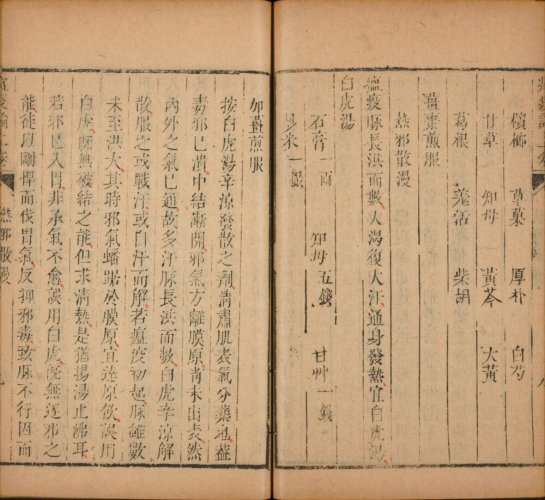 檳榔 草菓 厚朴 白芍
甘草 知母 黃芩 大黃
葛根 羗活 柴胡
薑棗煎服
熱邪散漫
瘟疫脉長洪而數大渴復大汗通身發熱宜白虎湯
白虎湯
石膏一兩 知母五錢 甘艸一錢
炒米一撮
加薑煎服
按白虎湯辛涼發散之劑清肅肌表氣分藥也蓋
毒邪已潰中結漸開邪氣方離膜原尚未出表然
內外之氣已通故多汗脉長洪而數白虎辛涼解
散服之或戰汗或自汗而解若瘟疫初起脉雖數
未至洪大其時邪氣蟠踞於膜原宜達原飲誤用
白虎既無破結之能但求清熱是猶揚湯止沸耳
若邪已入胃非承氣不愈誤用白虎既無逐邪之
能徒以剛悍而伐胃氣反抑邪毒致脉不行因而
熱邪散漫